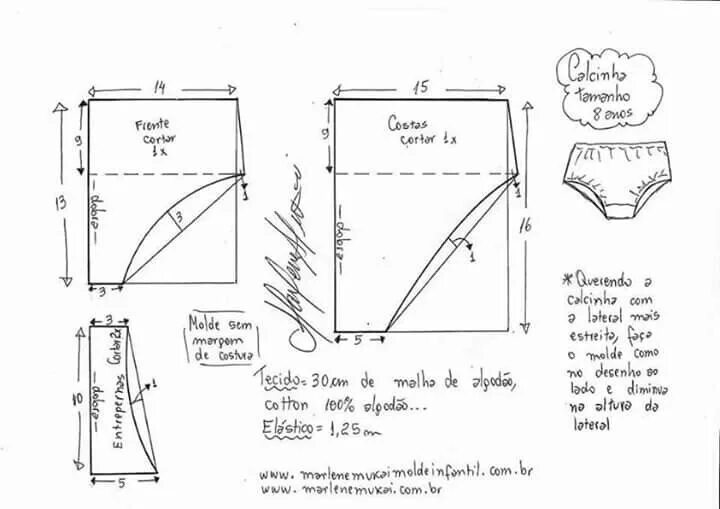 14
Frente
cortar
1x
9
13
dobra
3
1
3
15
Costas
cortar 1x
9
dobra
16
1
1
5
Calcinha
tamanho
8 anos
3
Cortar 2x
Entrepernas
dobra
10
1
5
Molde sem
margem
de costura
Tecido = 30 cm de malha de algodão,
cotton 100% algodão...
Elástico = 1,25 cm
www.marlenemukaimoldeinfantil.com.br
www.marlenemukai.com.br
* Querendo a
calcinha com
a lateral mais
estreita, faça
o molde como
no desenho ao
lado e diminua
na altura da
lateral